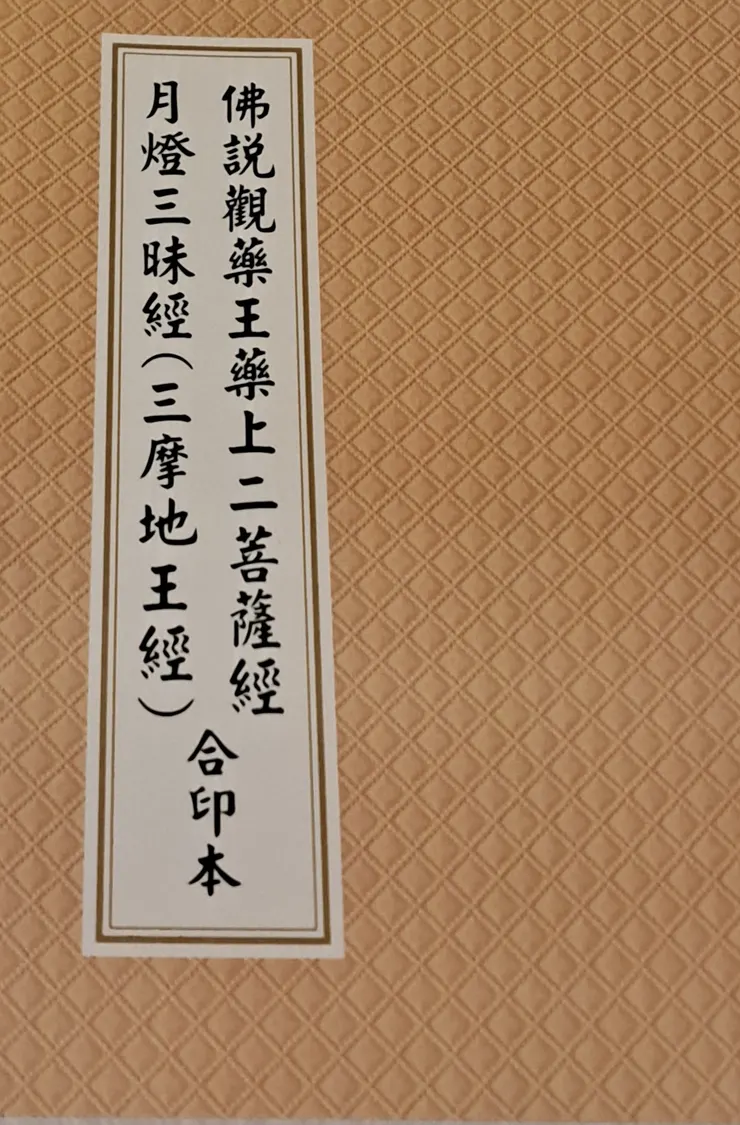 佛説觀藥王藥上二菩薩經
月燈三昧經（三摩地王經）
合印本